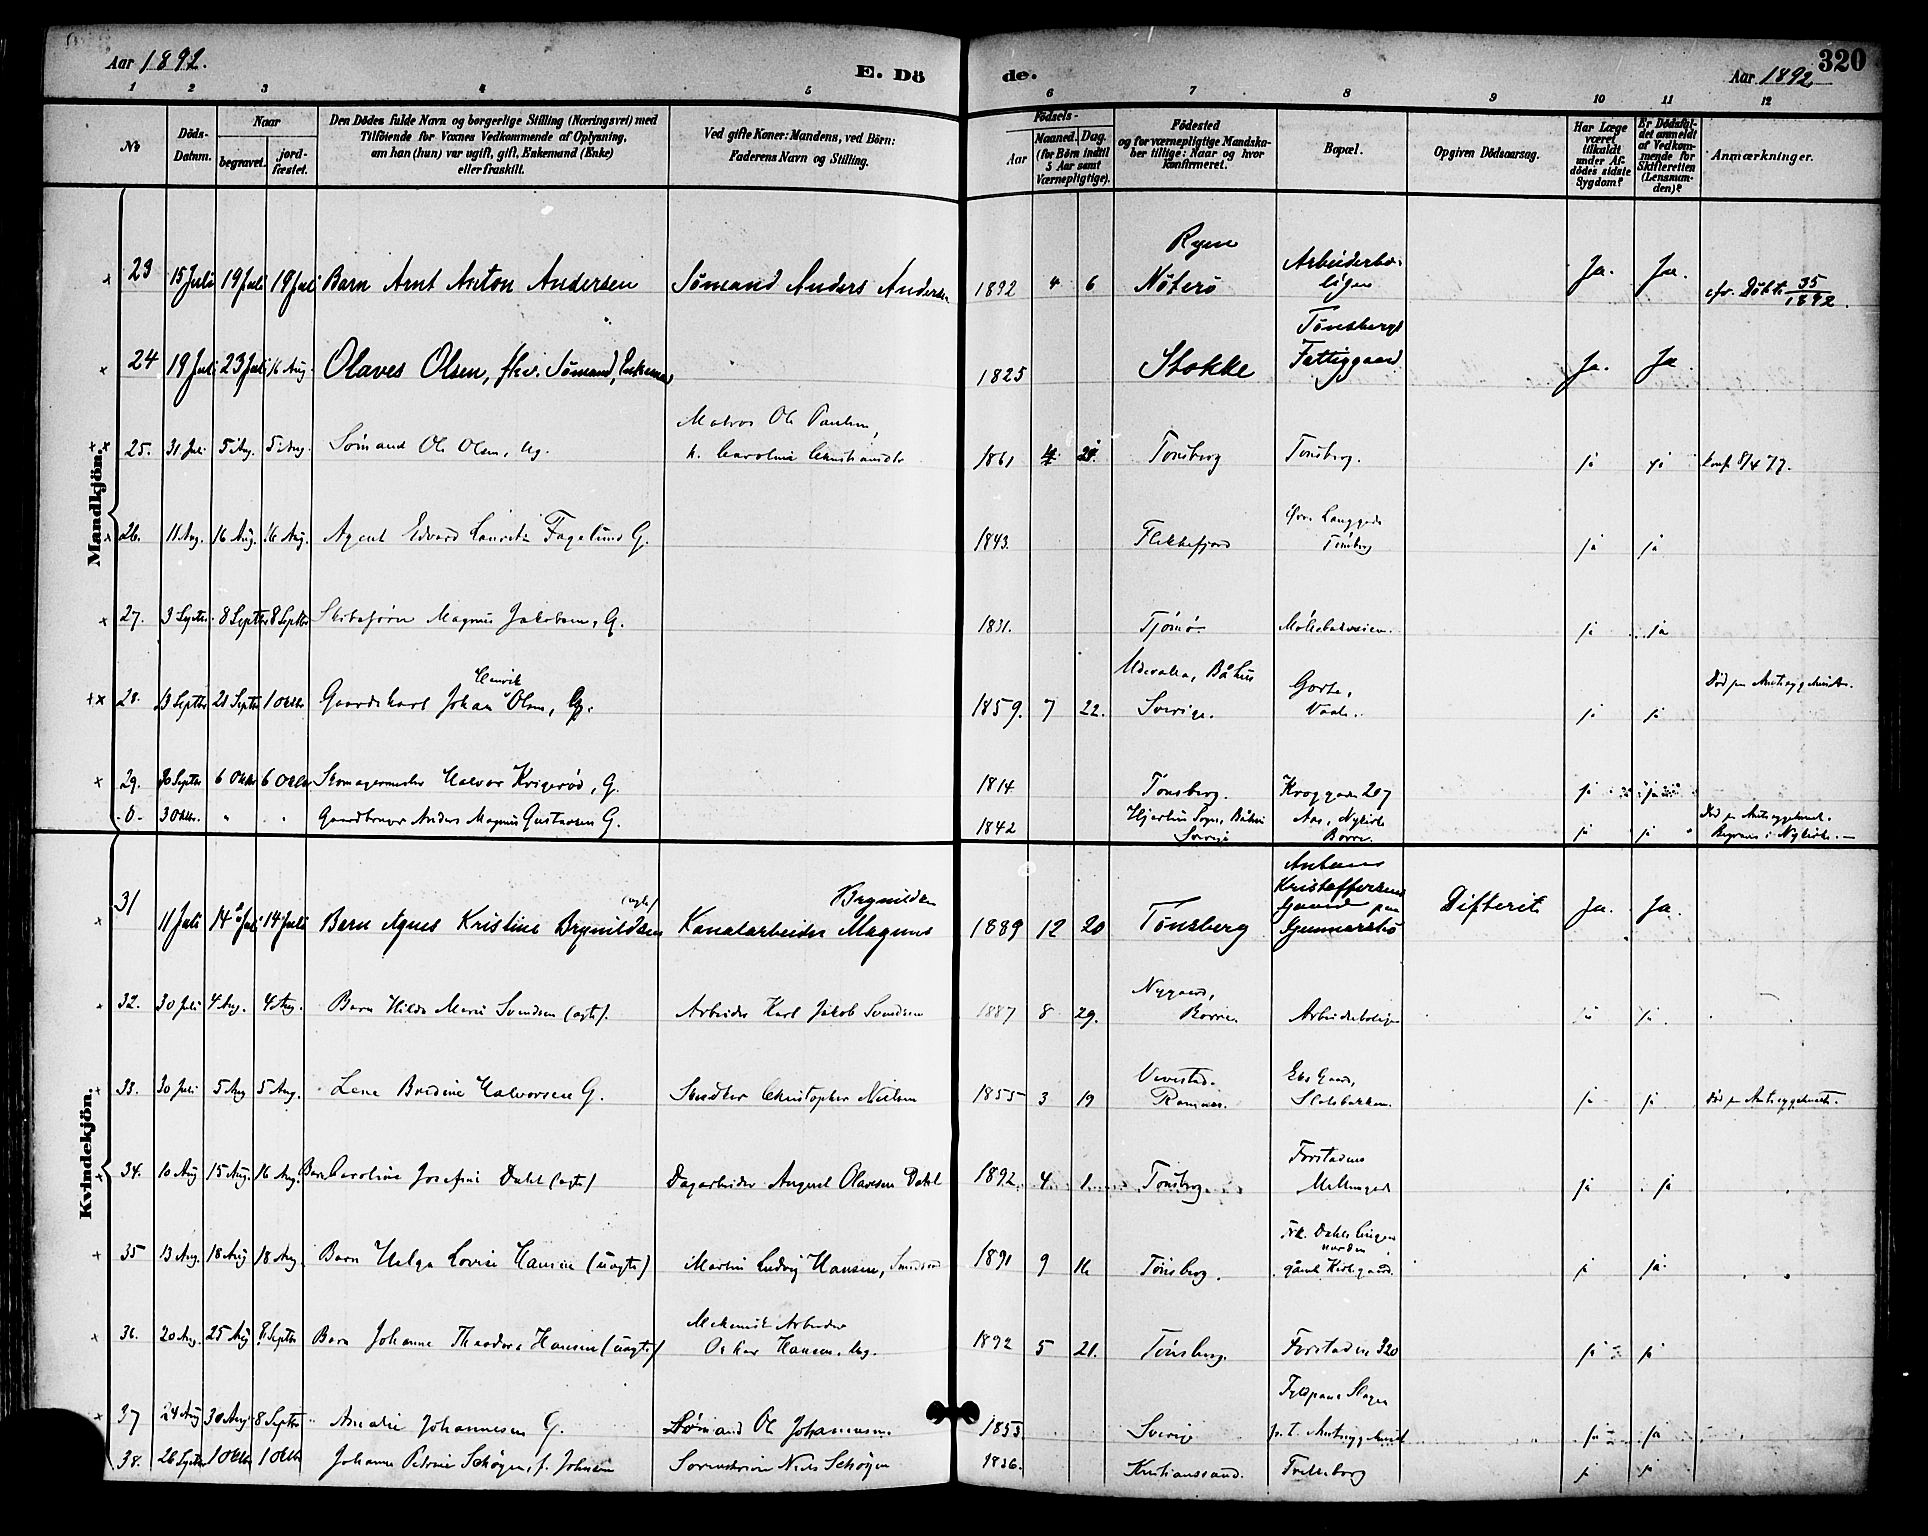 Aar 1892.
E. Dö
de.
Aar 1892
320
1 2 3 4 5 6 7 8 9 10 11 12
No
Döds-Datum.
Naar
begravet.
jordfæstet.
Den Dödes fulde Navn og borgerlige Stilling (Næringsvei) med
Tilföiende for Voxnes Vedkommende af Oplysning,
om han (hun) var ugift, gift, Enkemand (Enke)
eller fraskilt.
Ved gifte Koner: Mandens, ved Börn:
Faderens Navn og Stilling.
Födsels-
Aar
Maaned. Dag.
(for Börn indtil
5 Aar samt
Værnepligtige).
Födested
og for værnepligtige Mandskaber tillige: Naar og hvor
Konfirmeret.
Bopæl.
Opgiven Dödsaarsag.
Har Læge
været
tilkaldt
under Afdödes sidste
Sygdom?
Er Dödsfaldet anmeldt
af Vedkommende for
Skifteretten
(Lensmanden)?
Anmærkninger.
Mandkjön.
23 15 Juli 19 Juli 19 Juli Barn Arnt Anton Andersen Sømand Anders Andersen 1892 4 6 Ryen Nøterø Arbeiderboligen Ja. Ja. cfr. Døbte 35/1892.
24 19 Juli 23 Juli 16 Aug. Olaves Olsen, fhv. Sømand, Enkemand 1825 Stokke Tønsbergs Fattiggaard Ja. Ja
25. 31 Juli 5 Aug. 5 Aug. Sømand Ole Olsen, Ug. Matros Ole Paulsen, h. Caroline 1861 4 Tønsberg Tønsberg. ja ja konf. 8/4 77.
26. 11 Aug. 16 Aug. 16 Aug. Agent Edvard Fagelund G. 1843. Flekkefjord Øvre Langgade Tønsberg ja ja
27. 3 Septbr. 8 Septbr 8 Septbr Magnus Jakobsen, G. 1831. Tjømø. Møllebakveien. ja ja
28. 13 Septbr 1 Oktbr Gaardskarl Johan Henrik Olsen, G. 1859. 7 22. Uddevalla, Båhus Sverige. Vaale. ja ja Død paa Amtssygehuset.
29. 30 Septbr 6 Oktbr 6 Oktbr Skomagermester Halvor Krigerød, G. 1814 Tønsberg. Kroggaden 207 ja ja
3 Oktbr. " " Gaardbruger Anders Magnus Gustavsen G. 1842 Sogn, Båhus Sverige Aas, Nykirke Borre. ja ja Død paa Amtssygehuset. Begravet i Nykirke.
Kvindekjön.
31 11 Juli 14 Juli 14 Juli Barn Agnes Kristine Brynildsen (ægte) Kanalarbeider Magnus Brynildsen 1889 12 20 Tønsberg Antons Kristoffersens Gaard paa Gunnarsbø Difterit Ja. Ja.
32. 30 Juli 4 Aug. 4 Aug. Barn Hilda Marie Svendsen (ægte). Arbeider Karl Jakob Svendsen 1887 8 29. Nygaard, Borre. Arbeiderboligen ja ja.
33. 30 Juli 5 Aug 5 Aug. Lena Bredine Halvorsen G. Snedker Christopher Nielsen 1855 3 19 Ramnes. Eks Gaard, Slotsbakken. ja ja Død paa Amtssygehuset.
34. 10 Aug 15 Aug. 16 Aug. Barn Caroline Josefine Dahl (ægte) Dagarbeider August Olavesen Dahl 1892. 4 1. Tønsberg. Forstadens Mellemgade ja ja
35 13 Aug. 18 Aug 18 Aug. Barn Helga Lovise Hansen (uægte) Martin Ludvig Hansen, 1891 9 16 Tønsberg. Frk. Dahls norden gamle Kirkegaard. ja ja
36. 20 Aug. 25 Aug 8 Septbr Barn Johanne Theodora Hansen (uægte) Mekanisk Arbeider Oskar Hansen, Ug. 1892 5 21. Tønsberg. Forstaden 320 ja ja
37 24 Aug 30 Aug. 8 Septbr Amalie Johannesen G. Sømand Ole Johannesen. 1853 Sverige Slagen p. t. Amtssygehuset ja ja
38. 26 Septbr 1 Oktbr 1 Oktbr Johanne Petrine Schøyen, f. Johnsen Niels Schøyen 1836. Kristianssand. Trælleborg ja ja